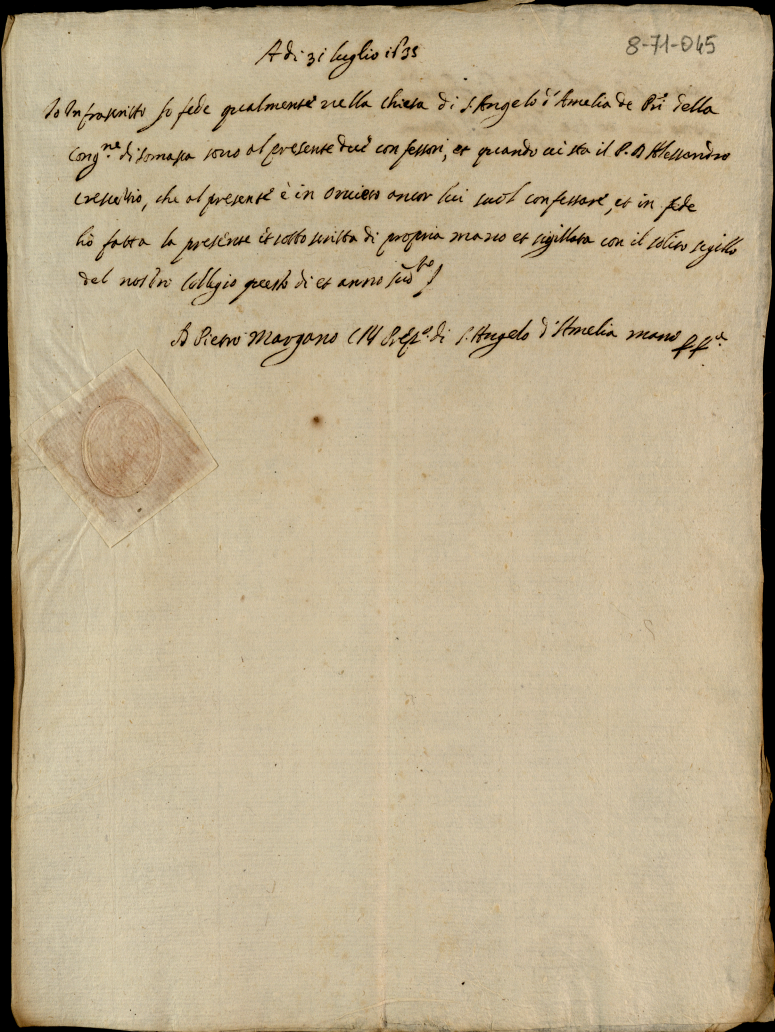 8-71-045
A di 31 luglio 1635
Io Infrascritto fo fede qualmente nella chiesa di S. Angelo d'Amelia de Pri della
Cong.ne di Somasca sono al presente due confessori, et quando ci sta il P. D Alessandro
Crescentio, che al presente è in Orvieto ancor lui suol confessare, et in fede
hò fatta la presente et sottoscritta di propria mano et sigillata con il solito sigillo
del nostro Collegio questo di et anno sud.to
D Pietro Margano CRS Prep.to di S. Angelo d'Amelia mano pp.a